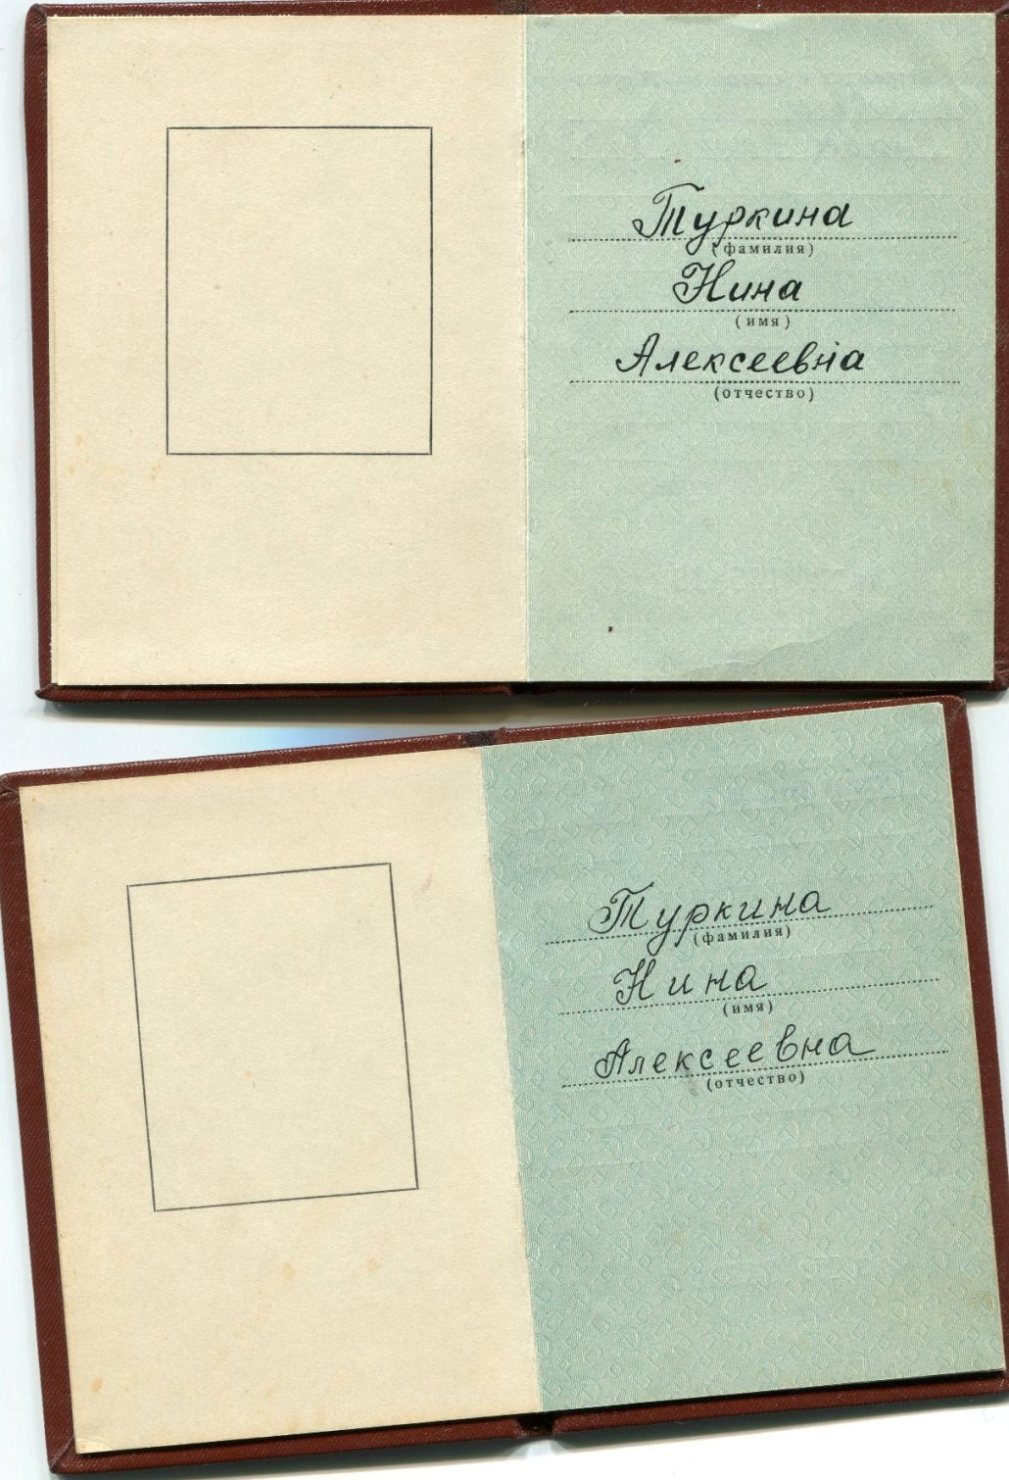 Туркина
(фамилия)
Нина
(имя)
Алексеевна
(отчество)
Туркина
(фамилия)
Нина
(имя)
Алексеевна
(отчество)